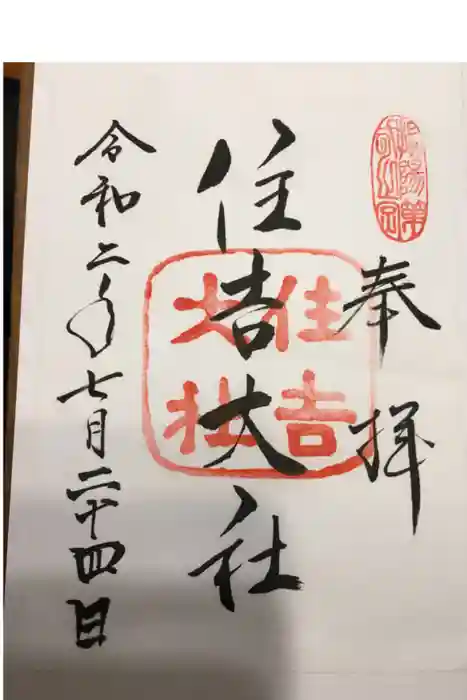 奉拝
住吉大社
住吉
大社
令和二年七月二十四日